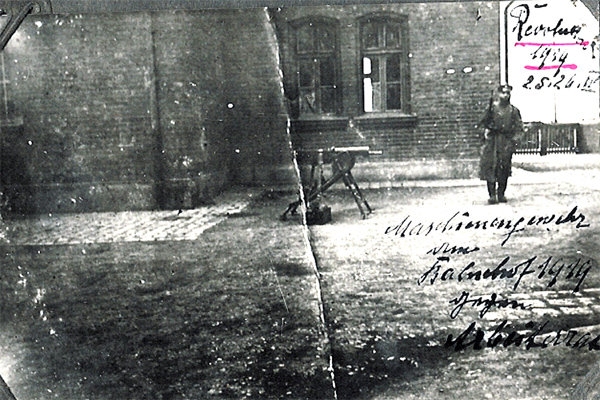 Revolut
1919
25.26.
Maschienengewehr
am
Bahnhof 1919
gegen
Arbeiterrat